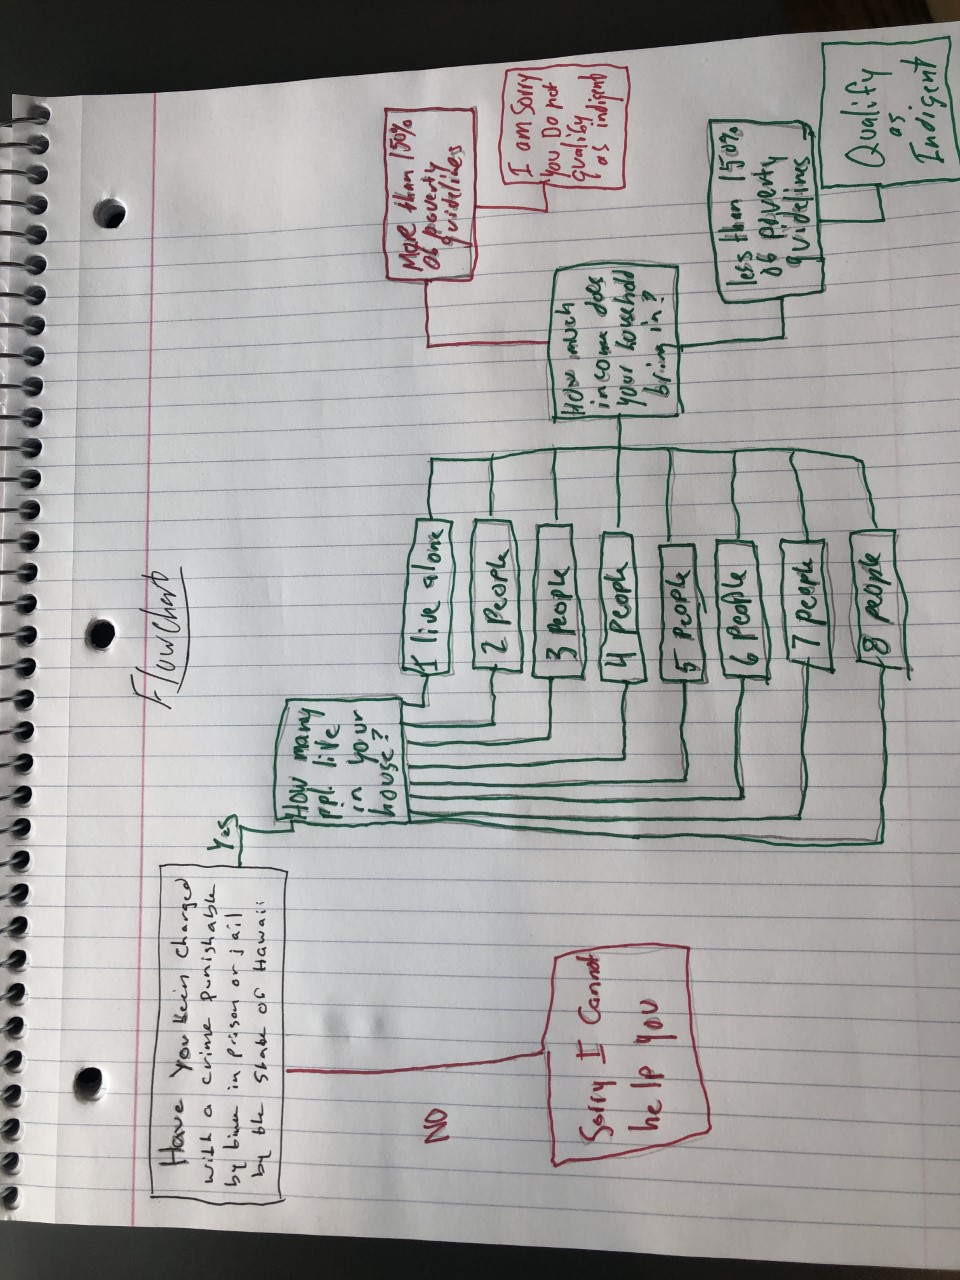 Flowchart
Have you been charged
with a crime punishable
by time in prison or jail
by the state of Hawaii
Yes
NO
Sorry I Cannot
help you
How many
ppl. live
in your
house?
1 live alone
2 People
3 People
4 People
5 People
6 People
7 people
8 people
How much
income does
your household
bring in?
More than 150%
of poverty
guidelines
I am Sorry
you Do not
Qualify
as indigent
less than 150%
of poverty
guidelines
Qualify
as
Indigent